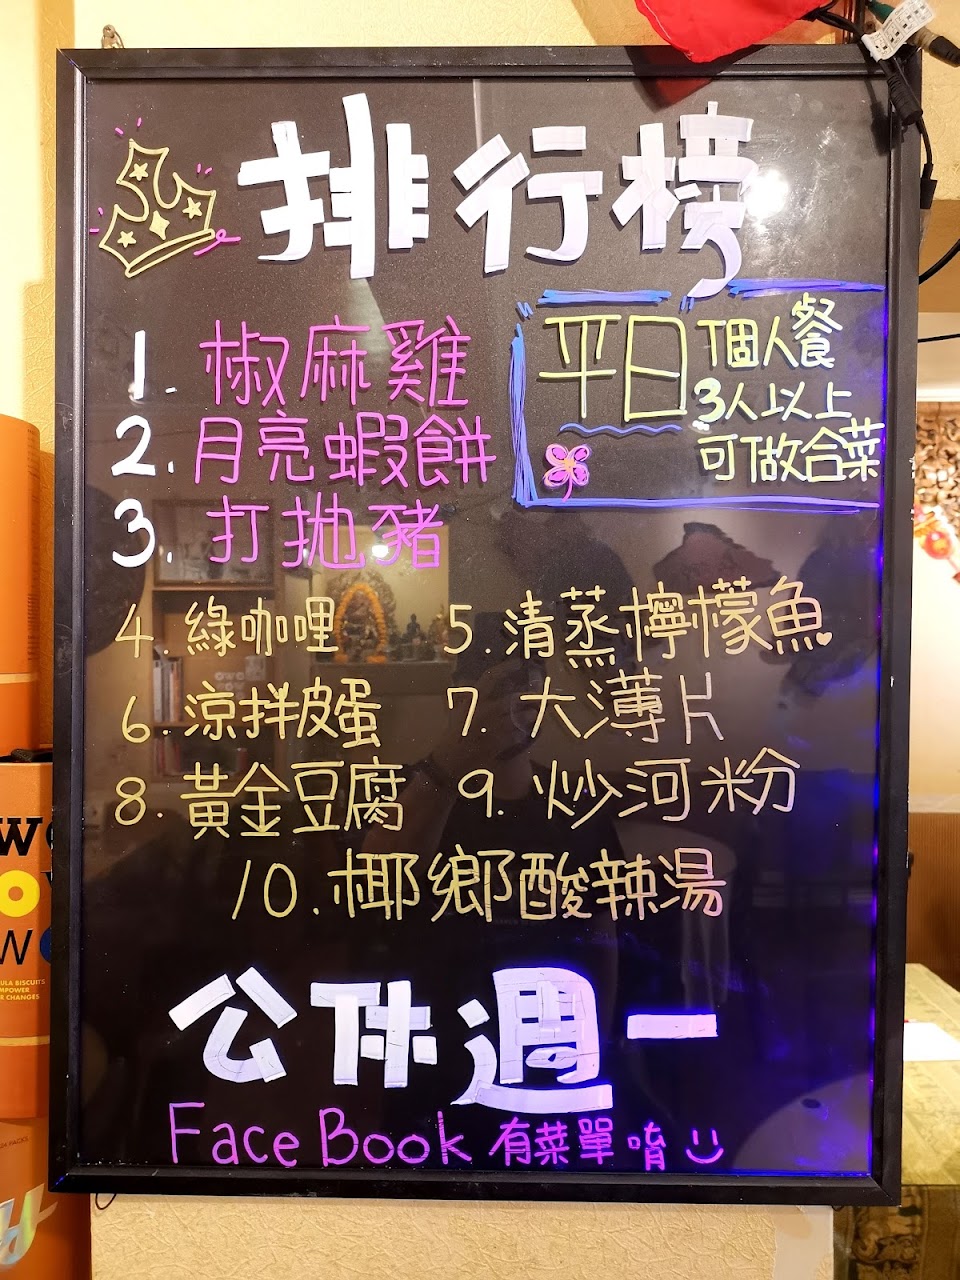 排行榜
1. 椒麻雞
2. 月亮蝦餅
3. 打拋豬
平日 個人餐
3人以上
可做合菜
4. 綠咖哩 5. 清蒸檸檬魚
6. 涼拌皮蛋 7. 大薄片
8. 黃金豆腐 9. 炒河粉
10. 椰鄉酸辣湯
公休週一
FaceBook 有菜單唷
ULA BISCUITS
MPOWER
R CHANGES
24 PACKS